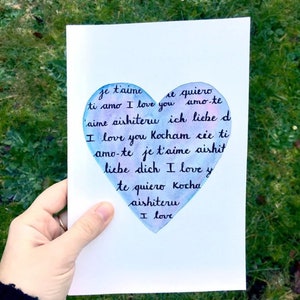 je t'aime te quiero
ti amo I love you amo-te
aime aishiteru ich liebe d
I love you Kocham cię ti
amo-te je t'aime aishit
liebe dich I love y
te quiero Kocha
aishiteru
I love